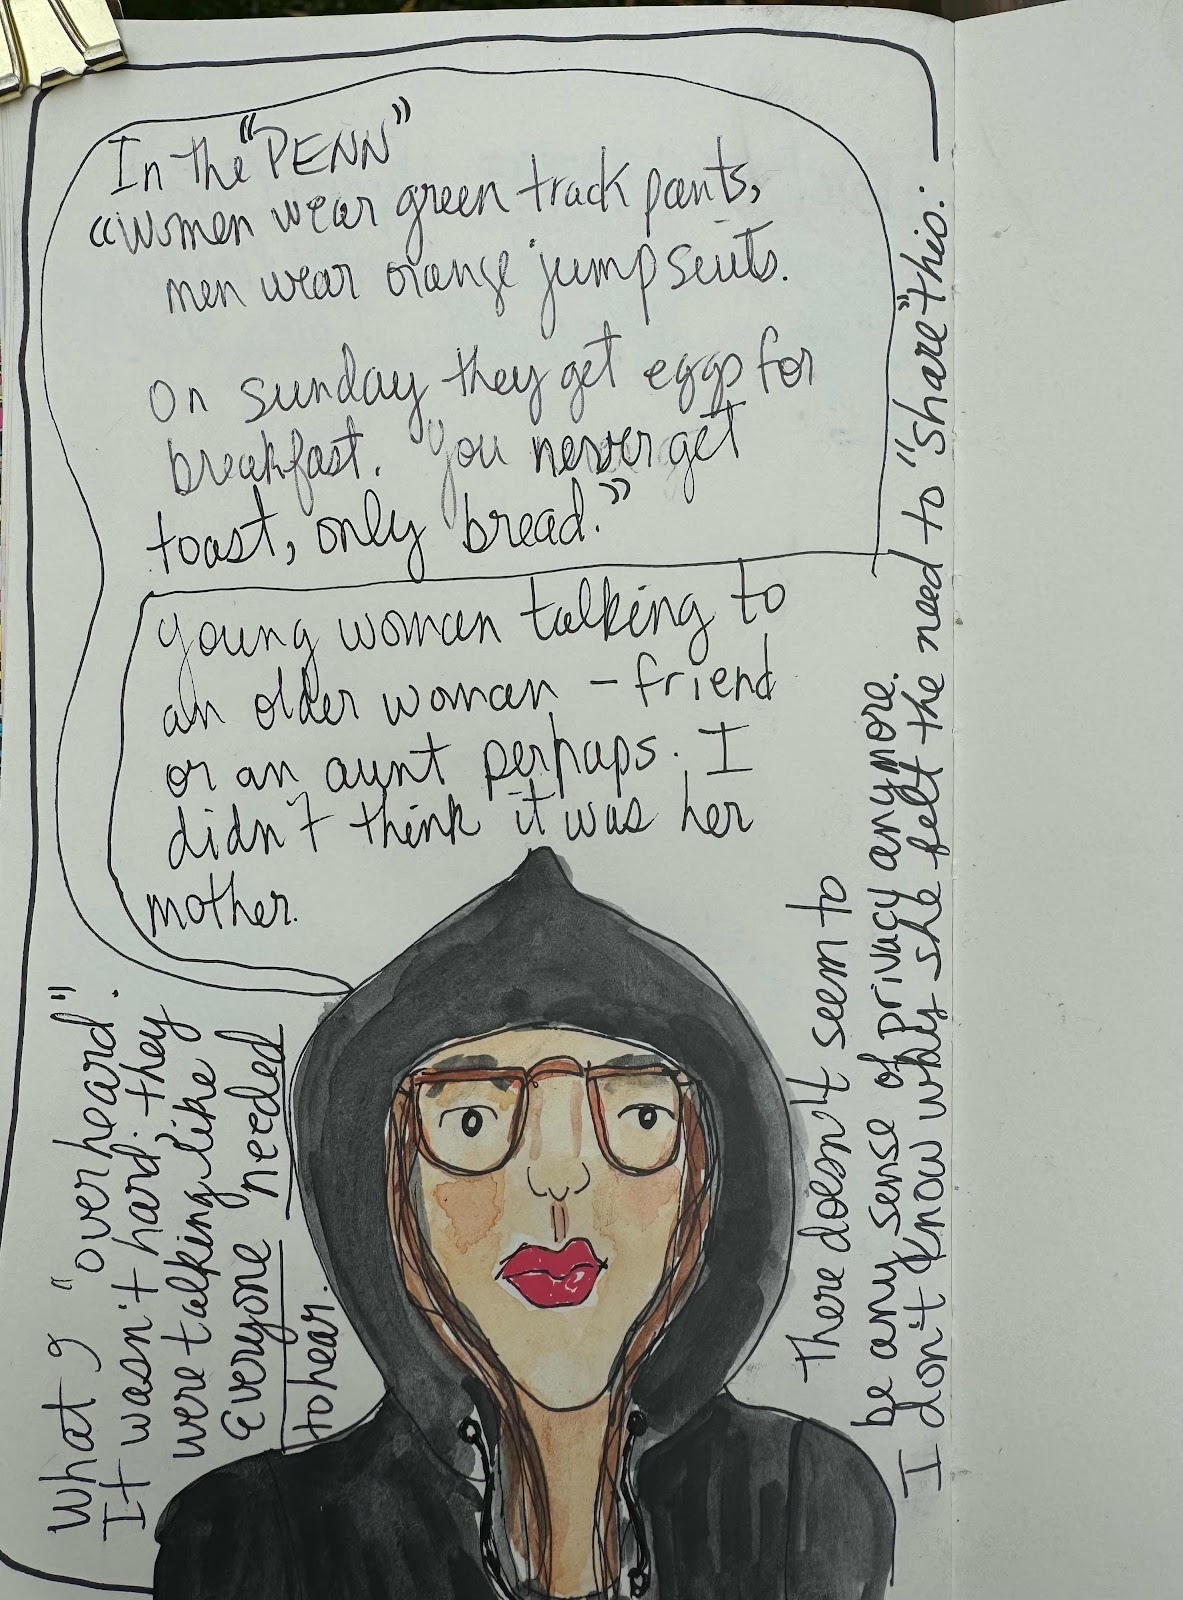 In the "PENN"
"Women wear green track pants,
men wear orange jump suits.
On Sunday they get eggs for
breakfast. You never get
toast, only bread."
young woman talking to
an older woman - friend
or an aunt perhaps. I
didn't think it was her
mother.
What I "overheard".
It wasn't hard. they
were talking like
Everyone needed
to hear.
There doesn't seem to
be any sense of privacy anymore.
I don't know why she felt the need to "share" this.